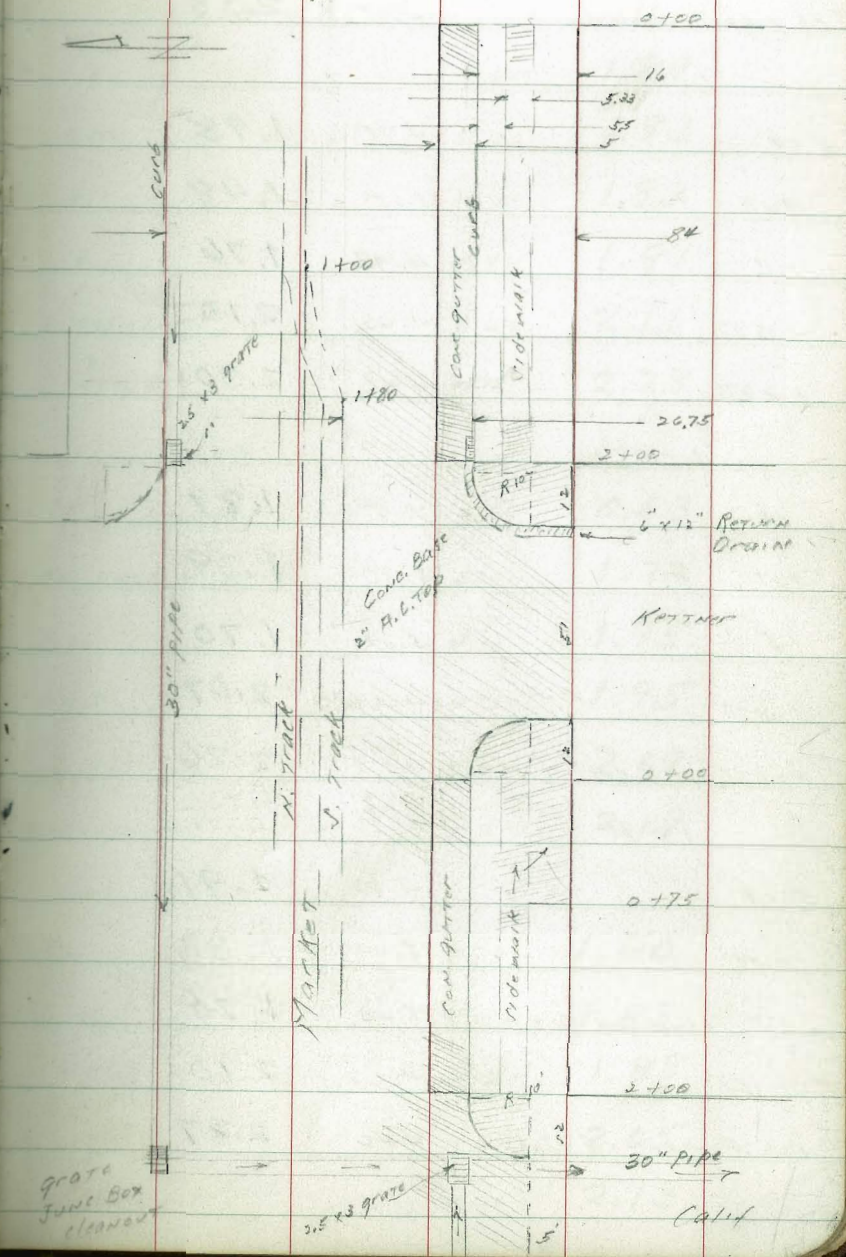 0+00
N
16
5.33
5.5
5
curb
84
1+00
conc gutter
curb
sidewalk
2.5 x3 grate
1+80
26.75
2+00
R 10'
12
6" x 12" Return
Drain
Conc. Base
2" A.C. Top
Kettner
30" PIPE
N. Track
S. Track
12
0+00
Market
con. gutter
sidewalk
0+75
2+00
R 10'
12
30" pipe
grate
Junc Box
cleanout
2.5 x3 grate
5'
Calif